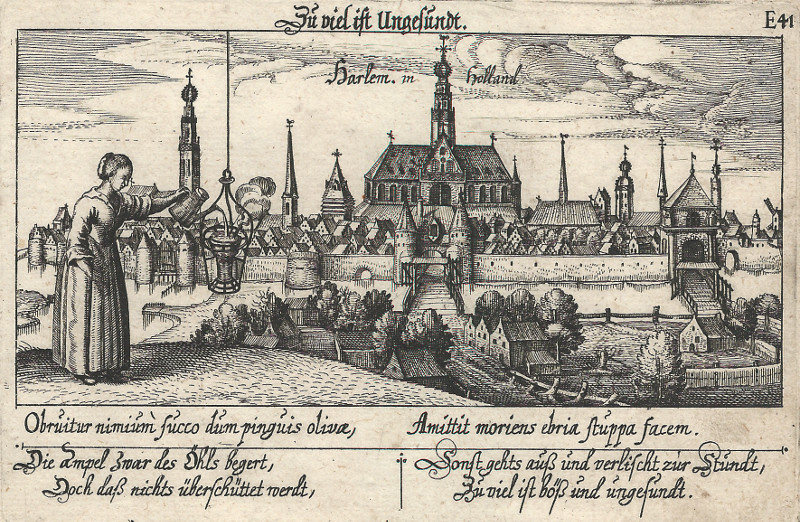 Zu viel ist Ungesundt.
E41
Harlem. in Holland
Obruitur nimium succo dum pinguis olivæ,
Amittit moriens ebria stuppa facem.
Die Ampel zwar des Öhls begert,
Doch daß nichts überschüttet werdt,
Sonst gehts auß und verlischt zur Stundt,
Zu viel ist böß und ungesundt.